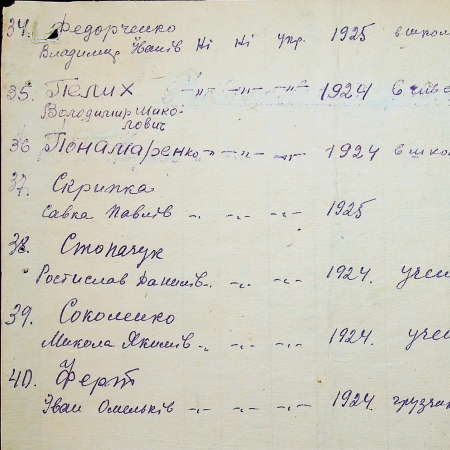 34. Федорченко
Владимир Йонів Ні Ні укр. 1925 в школ
35. Пелих -"- -"- -"- 1924 6
Володимир Мико-
лович
36 Понамаренко -"- -"- -"- 1924 в шко
37. Скрипка
Савка Павлів -"- -"- -"- 1925
38. Стопачук
Ростислав Данилів -"- -"- -"- 1924. учен
39. Соколенко
Микола Якимів -"- -"- -"- 1924. учен
40. Ферт
Іван Омельків -"- -"- -"- 1924. грузчик